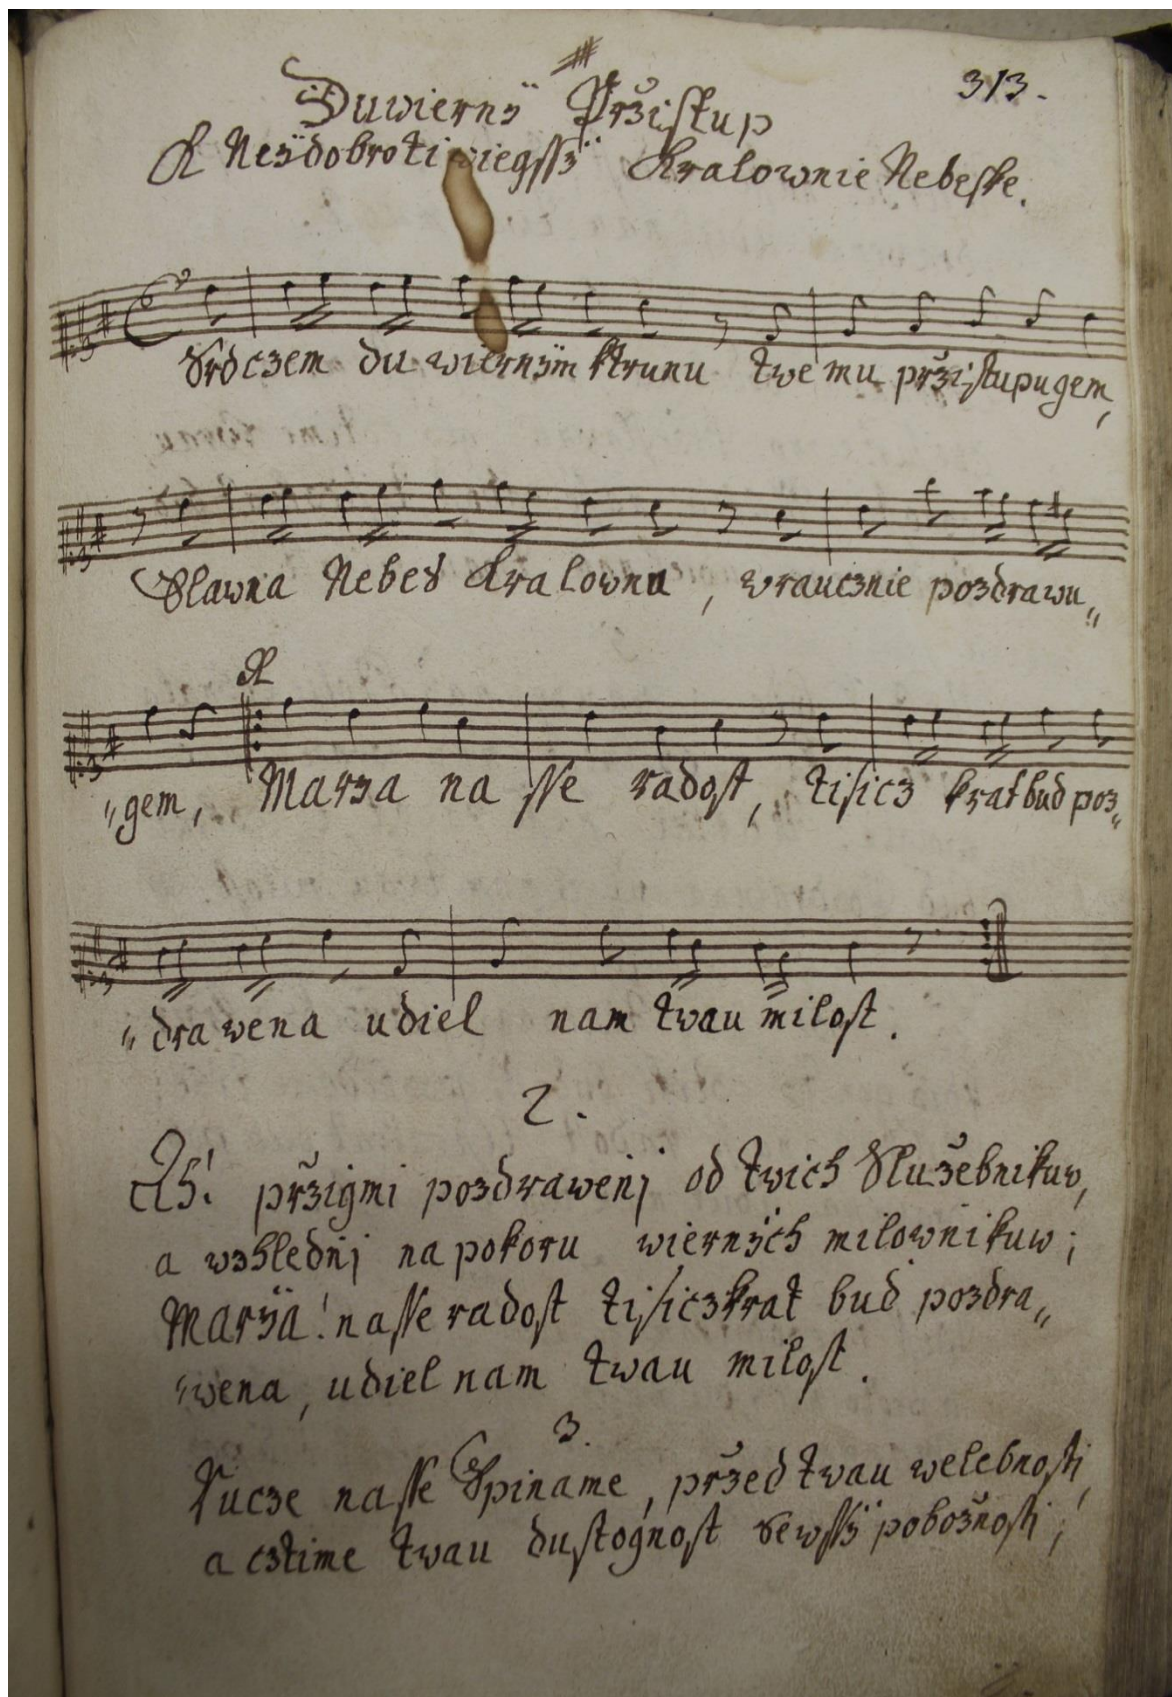 313.
Duwiernÿ Pržistup
K Neÿdobrotiwiegssÿ Kralownie Nebeske.
Srdczem duwiernÿm ktrunu twemu pržistupugem,
Slawna Nebes Kralowna, wraucznie pozdrawu„
R
„gem, Marya nasse radost, tisicz krat bud poz„
„drawena udiel nam twau milost.
2.
Ah! pržigmi pozdrawenj od twich Služebnikuw,
a wzhlednj na pokoru wiernÿch milownikuw;
Marÿa! nasse radost tisiczkrat bud pozdra„
„wena, udiel nam twau milost.
3.
Rucze nasse Spiname, pržed twau welebnosti,
a cztime twau dustognost sewssÿ pobožnosti;